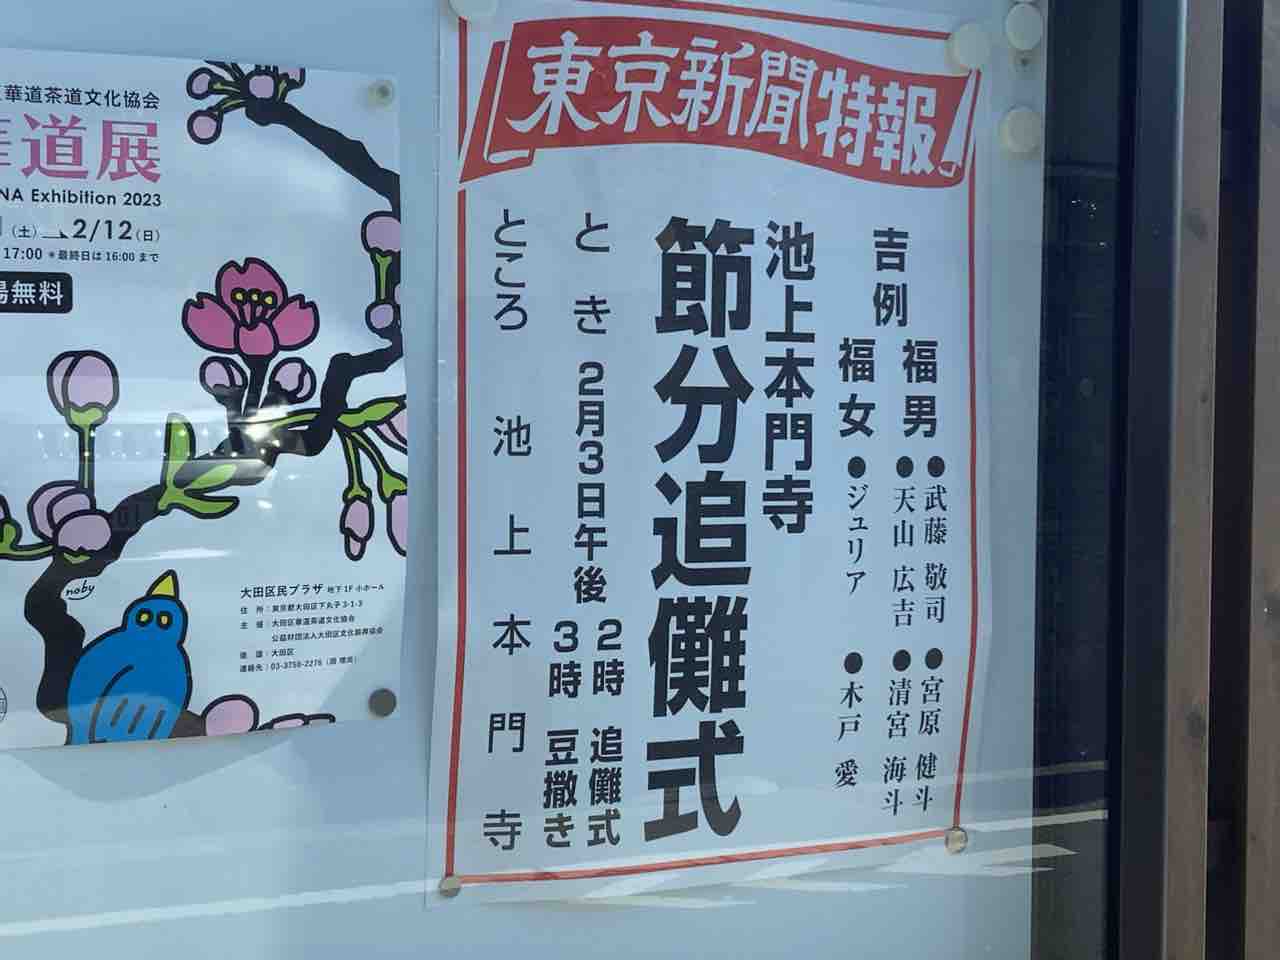 東京新聞特報
吉例
福男
●武藤 敬司 ●宮原 健斗
●天山 広吉 ●清宮 海斗
福女
●ジュリア ●木戸 愛
池上本門寺
節分追儺式
とき 2月3日午後 2時 追儺式
3時 豆撒き
ところ 池上本門寺
華道茶道文化協会
道展
NA Exhibition 2023
(土) 2/12(日)
17:00 *最終日は16:00まで
場無料
noby
大田区民プラザ 地下1F小ホール
住 所:東京都大田区下丸子3-1-3
主 催:大田区華道茶道文化協会
公益財団法人大田区文化振興協会
後 援:大田区